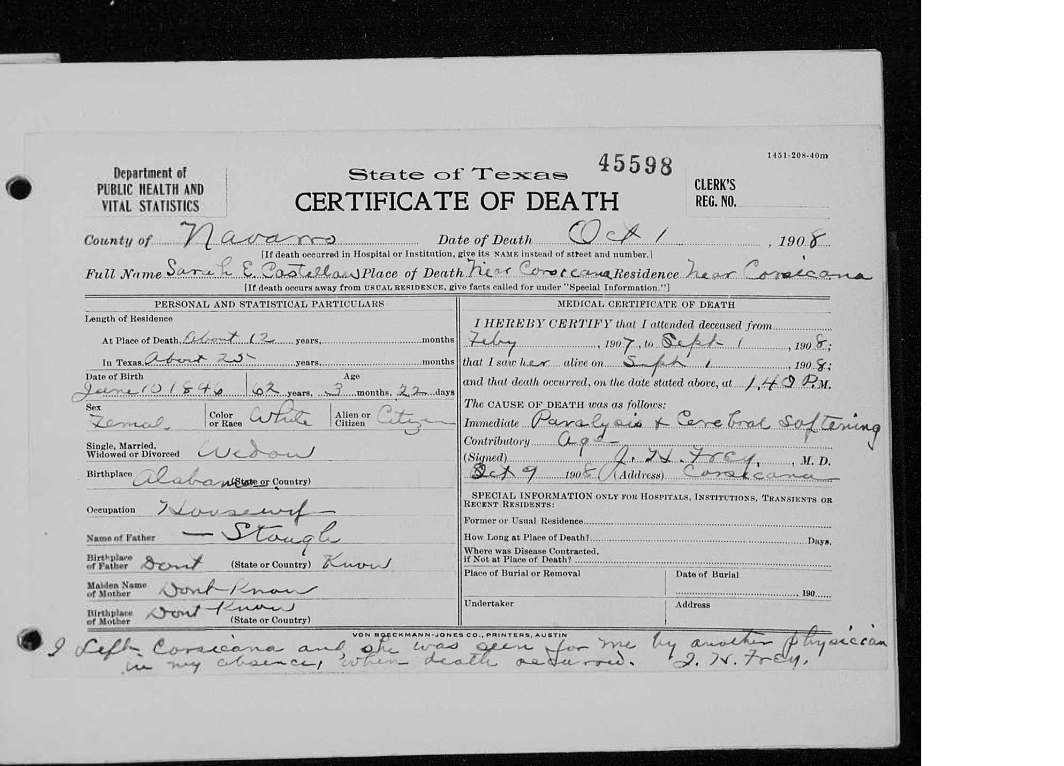 1451-208-40m
45598
Department of PUBLIC HEALTH AND VITAL STATISTICS
State of Texas
CERTIFICATE OF DEATH
CLERK'S REG. NO.
County of Navarro Date of Death Oct 1, 1908
[If death occurred in Hospital or Institution, give its NAME instead of street and number.]
Full Name Sarah E Castellaw Place of Death Near Corsicana Residence Near Corsicana
[If death occurs away from USUAL RESIDENCE, give facts called for under "Special Information."]
PERSONAL AND STATISTICAL PARTICULARS
Length of Residence
At Place of Death, About 12 years, months
In Texas, About 25 years, months
Date of Birth Age
June 10 1846 62 years, 3 months, 22 days
Sex Femal Color or Race White Alien or Citizen Citizen
Single, Married, Widowed or Divorced Widow
Birthplace Alabama (State or Country)
Occupation Housewif
Name of Father — Stough
Birthplace of Father Dont (State or Country) Know
Maiden Name of Mother Dont Know
Birthplace of Mother Dont Know (State or Country)
MEDICAL CERTIFICATE OF DEATH
I HEREBY CERTIFY that I attended deceased from
Feby, 1907, to Sept 1, 1908;
that I saw her alive on Sept 1, 1908;
and that death occurred, on the date stated above, at 1,40 P.M.
The CAUSE OF DEATH was as follows:
Immediate Paralysis & Cerebral Softening
Contributory Age
(Signed) J. H. Frey, M. D.
Oct 9 1908 (Address) Corsicana
SPECIAL INFORMATION ONLY FOR HOSPITALS, INSTITUTIONS, TRANSIENTS OR RECENT RESIDENTS:
Former or Usual Residence
How Long at Place of Death? Days.
Where was Disease Contracted, if Not at Place of Death?
Place of Burial or Removal Date of Burial
, 190
Undertaker Address
VON BOECKMANN-JONES CO., PRINTERS, AUSTIN
I Left Corsicana and she was seen for me by another physician
in my absence, when death occurred. J. H. Frey.